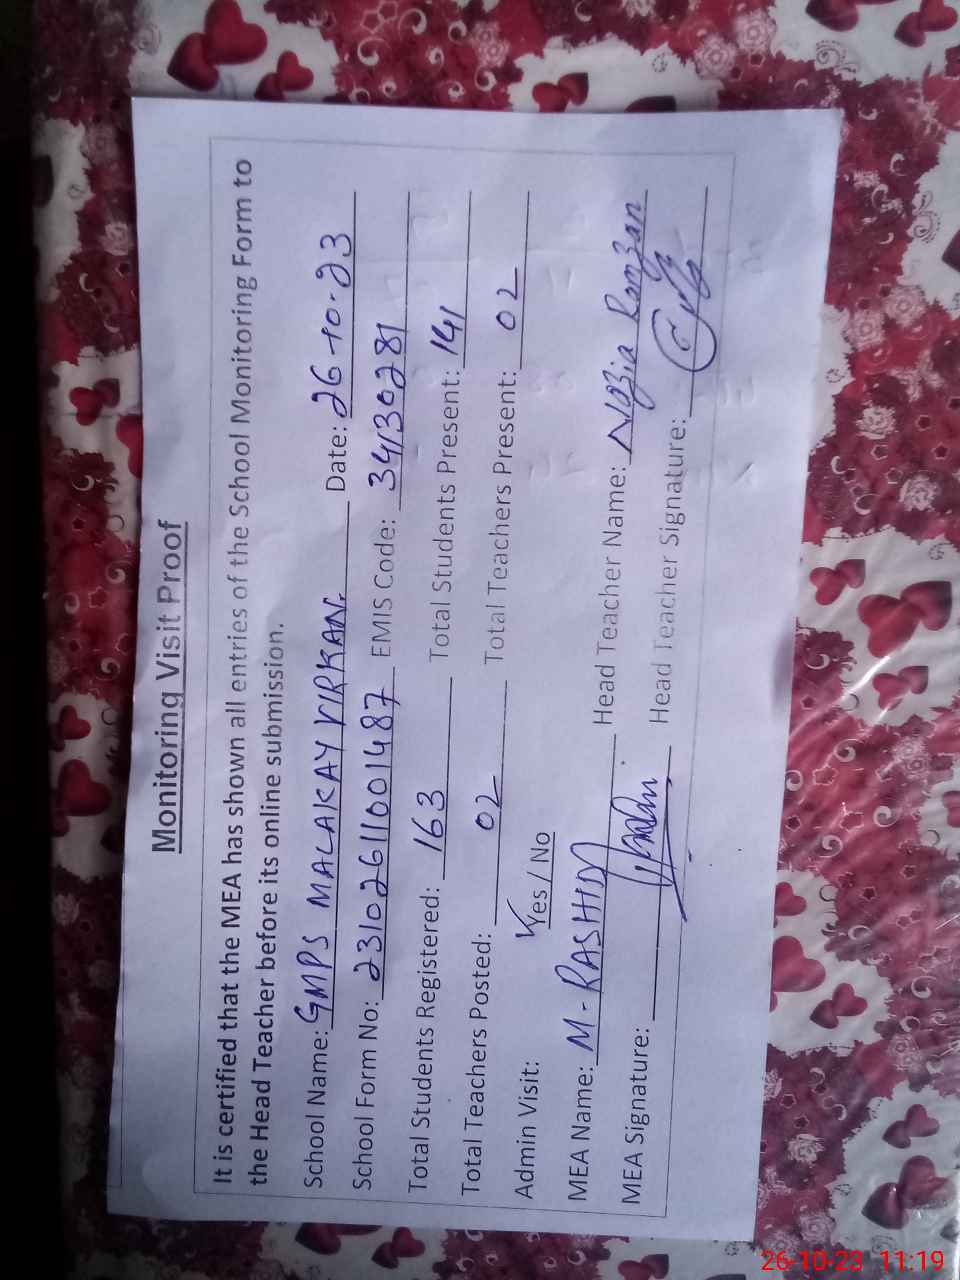 Monitoring Visit Proof
It is certified that the MEA has shown all entries of the School Monitoring Form to
the Head Teacher before its online submission.
School Name: GMPS MALAKAY VIRKAN. Date: 26-10-23
School Form No: 23102611001487 EMIS Code: 34130281
Total Students Registered: 163 Total Students Present: 141
Total Teachers Posted: 02 Total Teachers Present: 02
Admin Visit: Yes / No
MEA Name: M-RASHID Head Teacher Name: Nazia Ramzan
MEA Signature: Head Teacher Signature:
26-10-23 11:19